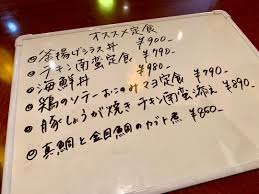 オススメ定食
釜揚げシラス丼 ¥900-
チキン南蛮定食 ¥790-
海鮮丼 ¥990-
鶏のソテーきのこマヨ定食 ¥790-
豚しょうが焼きチキン南蛮添え ¥890-
真鯛と金目鯛のカブト煮 ¥850-